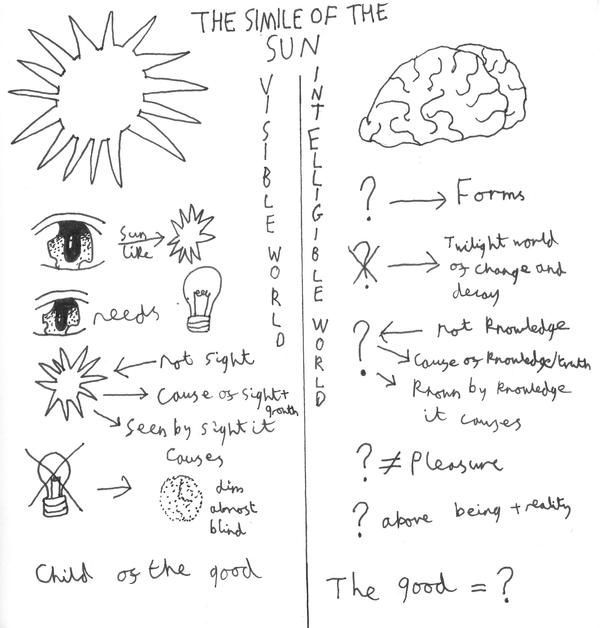 THE SIMILE OF THE
SUN
VISIBLE WORLD
INTELLIGIBLE WORLD
Sun
like
needs
not sight
Cause of sight +
growth
Seen by sight it
Causes
dim
almost
blind
Child of the good
? → Forms
? → Twilight world
of change and
decay
? ← not knowledge
Cause of knowledge/truth
Known by knowledge
it causes
? ≠ Pleasure
? above being + reality
The good = ?